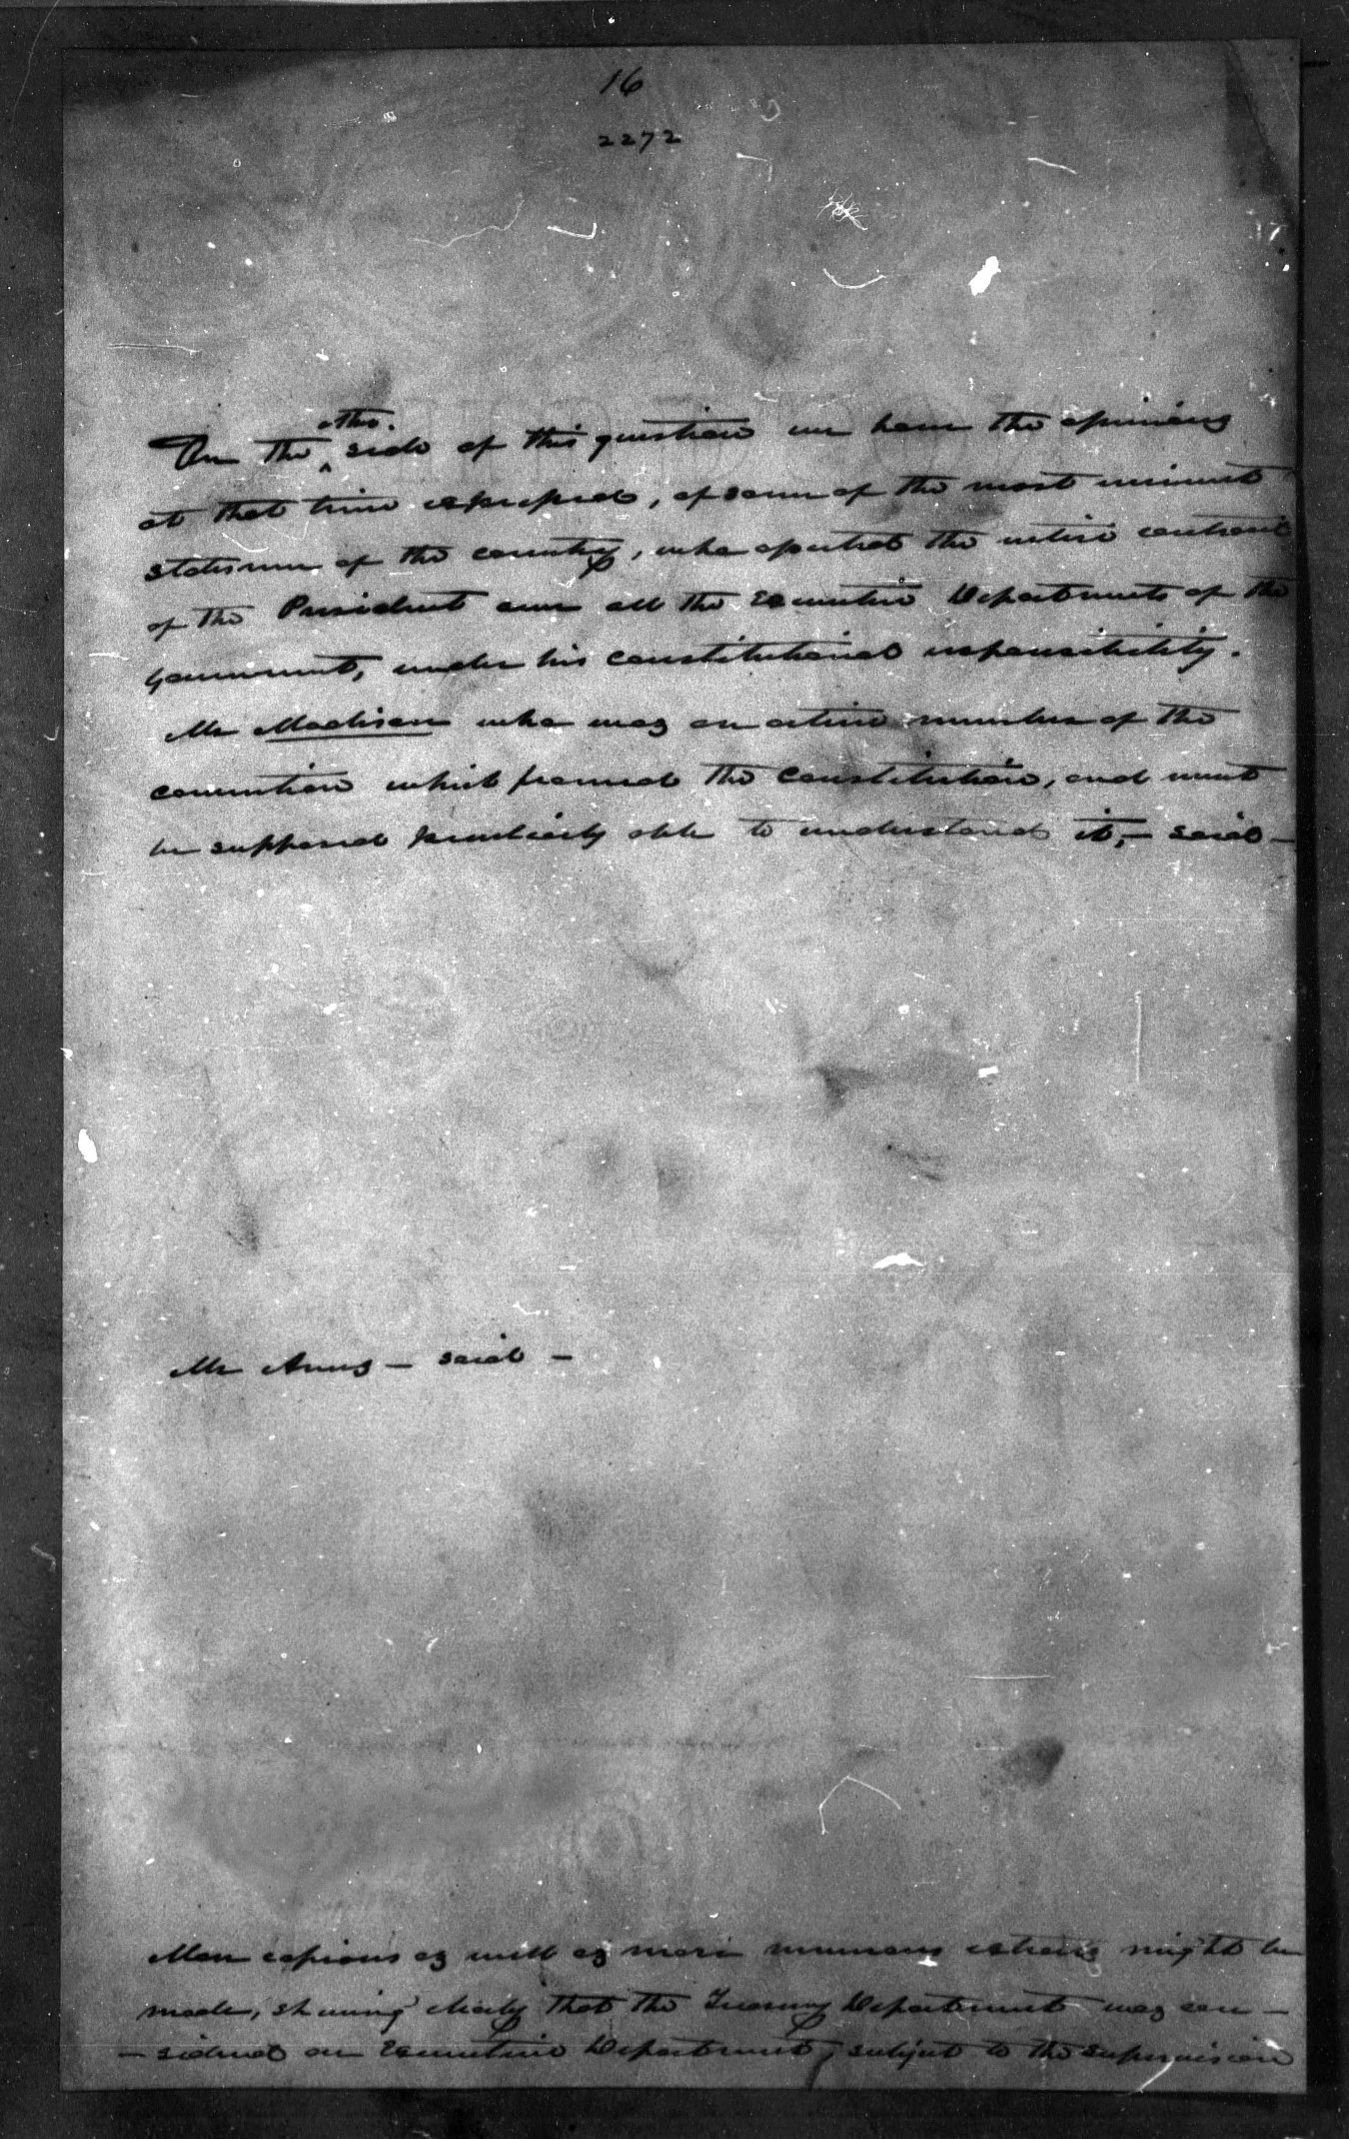 16
2272
other
On the ^ side of this question we have the opinions
at that time expressed, of some of the most eminent
statesmen of the country, who asserted the entire controul
of the President over all the Executive Departments of the
government, under his constitutional responsibility.
Mr Madison who was an active member of the
convention which framed the Constitution, and must
be supposed peculiarly able to understand it, — said —
Mr Ames — said —
More copious as well as more numerous extracts might be
made, showing clearly that the Treasury Department was con-
- sidered an Executive Department, subject to the supervision